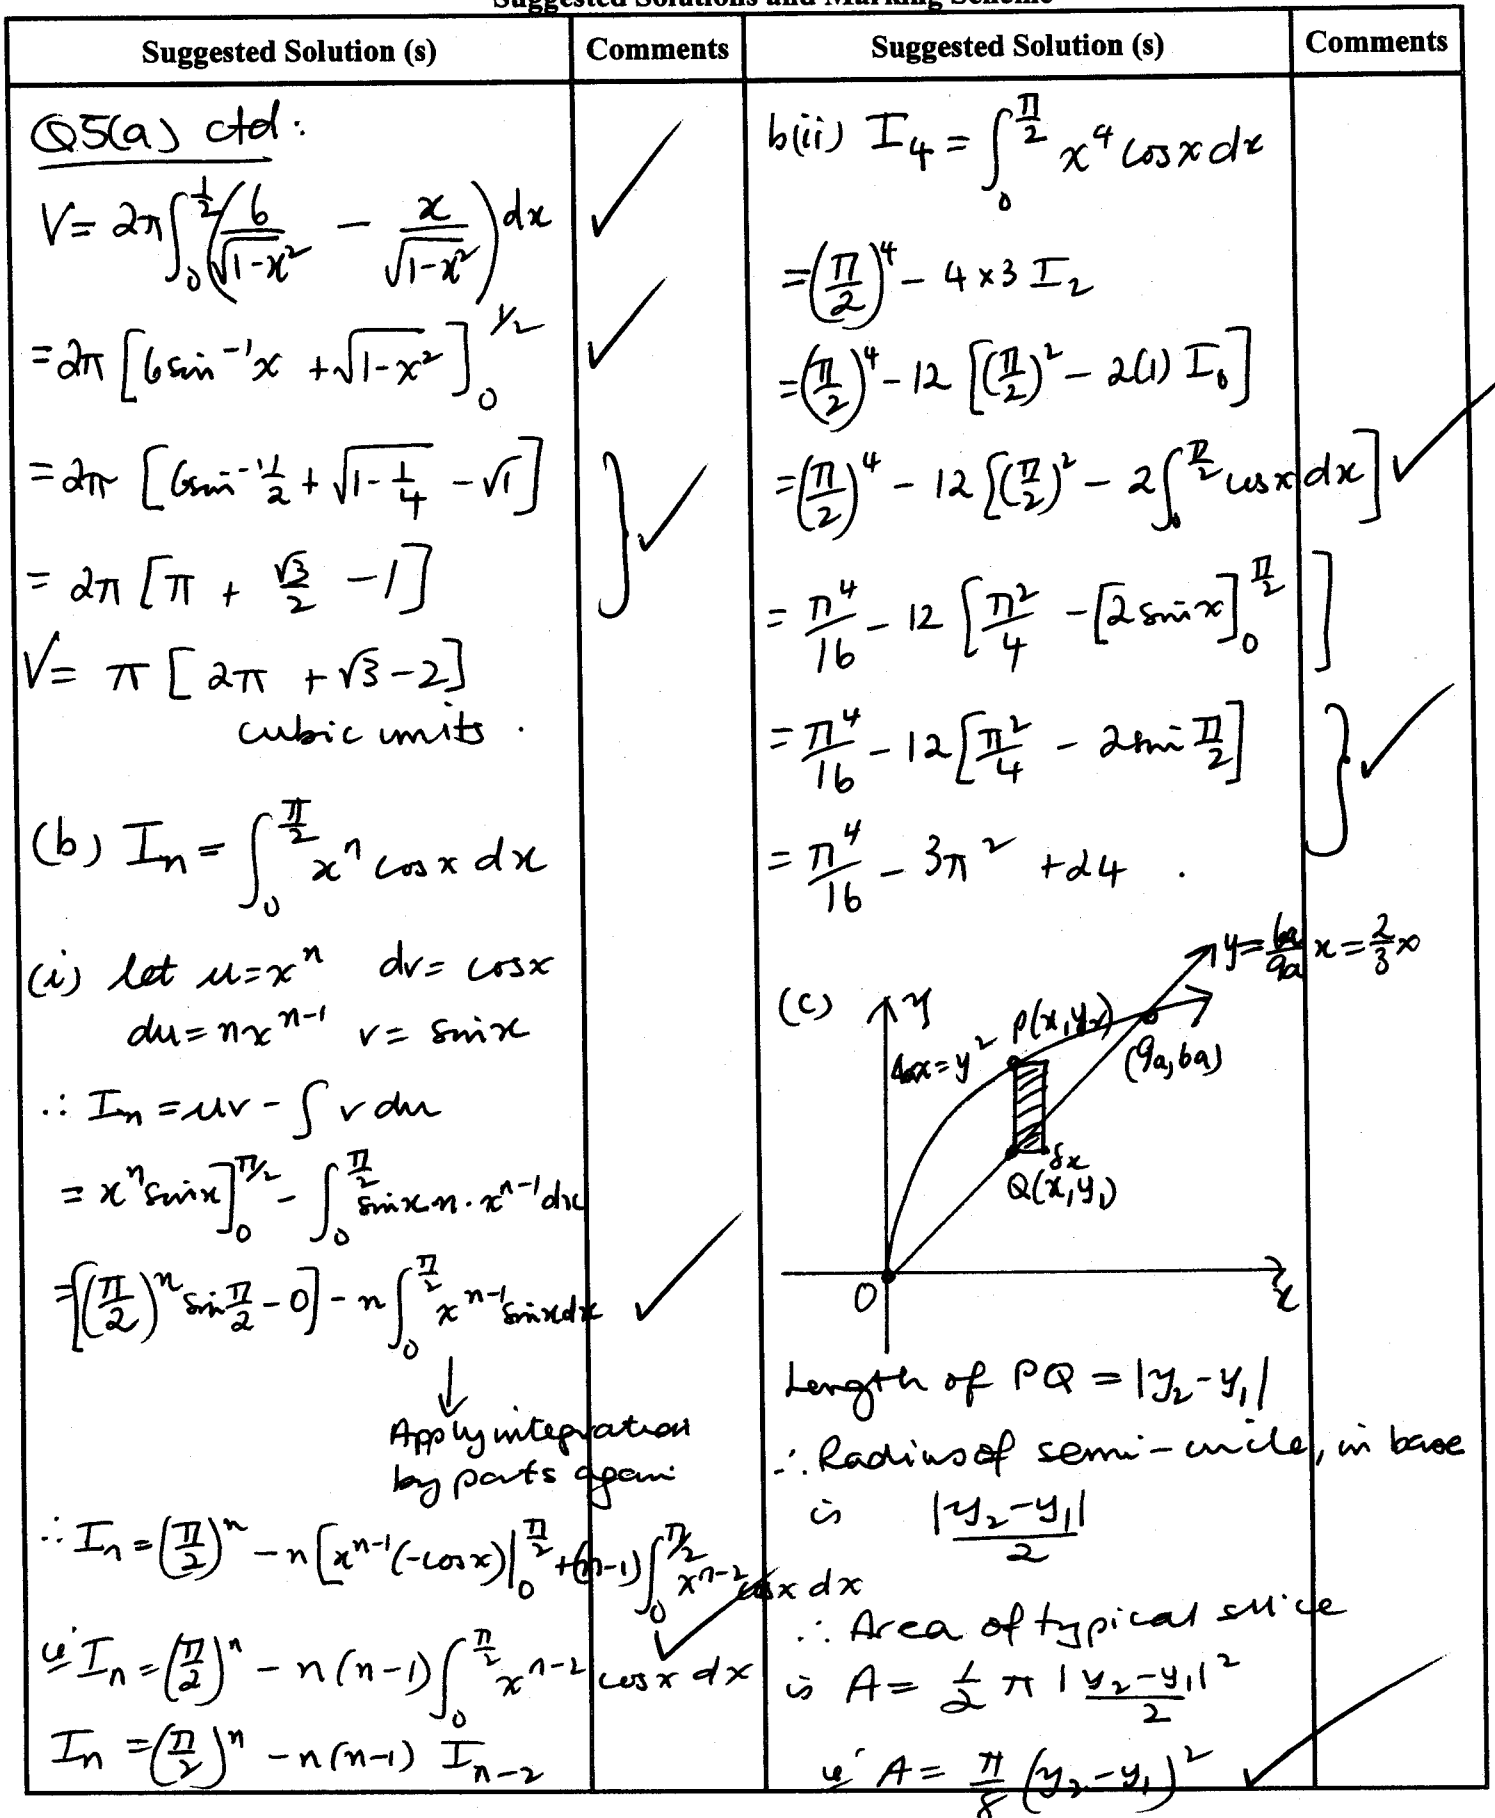 Suggested Solutions and Marking Scheme
Suggested Solution (s)
Comments
Q5(a) ctd:
V = 2π ∫₀^(1/2) (6/√(1-x²) - x/√(1-x²)) dx
= 2π [6 sin⁻¹x + √(1-x²)]₀^(1/2)
= 2π [6 sin⁻¹ 1/2 + √(1 - 1/4) - √1]
= 2π [π + √3/2 - 1]
V = π [2π + √3 - 2]
cubic units.
(b) Iₙ = ∫₀^(π/2) xⁿ cos x dx
(i) let u = xⁿ dv = cos x
du = nxⁿ⁻¹ v = sin x
∴ Iₙ = uv - ∫ v du
= xⁿ sin x]₀^(π/2) - ∫₀^(π/2) sin x n · xⁿ⁻¹ dx
= [(π/2)ⁿ sin π/2 - 0] - n ∫₀^(π/2) xⁿ⁻¹ sin x dx
↓
Apply integration
by parts again
∴ Iₙ = (π/2)ⁿ - n [xⁿ⁻¹(-cos x)|₀^(π/2) + (n-1) ∫₀^(π/2) xⁿ⁻² cos x dx
ie Iₙ = (π/2)ⁿ - n(n-1) ∫₀^(π/2) xⁿ⁻² cos x dx
Iₙ = (π/2)ⁿ - n(n-1) Iₙ₋₂
Suggested Solution (s)
Comments
b(ii) I₄ = ∫₀^(π/2) x⁴ cos x dx
= (π/2)⁴ - 4×3 I₂
= (π/2)⁴ - 12 [(π/2)² - 2(1) I₀]
= (π/2)⁴ - 12 [(π/2)² - 2 ∫₀^(π/2) cos x dx]
= π⁴/16 - 12 [π²/4 - [2 sin x]₀^(π/2)]
= π⁴/16 - 12 [π²/4 - 2 sin π/2]
= π⁴/16 - 3π² + 24.
(c)
y
y = 6a/9a x = 2/3 x
4ax = y²
P(x, y₂)
(9a, 6a)
δx
Q(x, y₁)
O
x
Length of PQ = |y₂ - y₁|
∴ Radius of semi-circle, in base
is |y₂ - y₁|/2
∴ Area of typical slice
is A = 1/2 π |y₂ - y₁|²/2
ie A = π/8 (y₂ - y₁)²